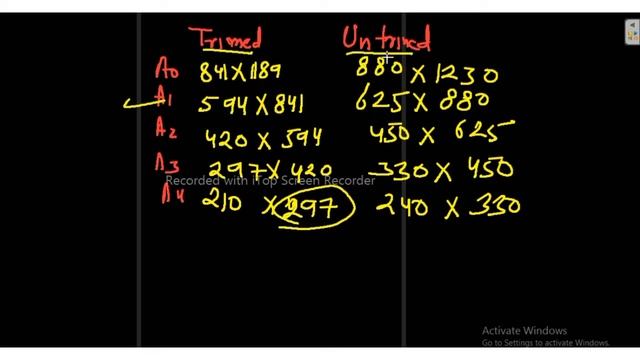 Trimed Untrimed
A0 841 X 1189 880 X 1230
A1 594 X 841 625 X 880
A2 420 X 594 450 X 625
A3 297 X 420 330 X 450
Recorded with iTop Screen Recorder
A4 210 X 297 240 X 330
Activate Windows
Go to Settings to activate Windows.